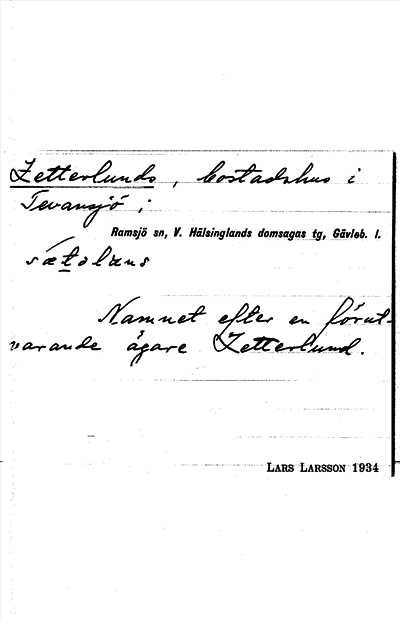 Zetterlunds, bostadshus i
Tevansjö;
Ramsjö sn, V. Hälsinglands domsagas tg, Gävleb. l.
Namnet efter en förut-
varande ägare Zetterlund.
LARS LARSSON 1934